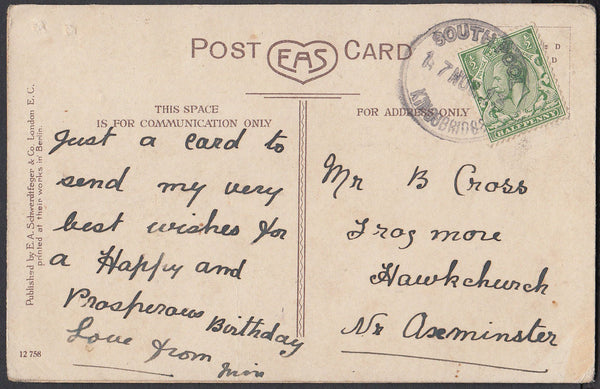 POST EAS CARD
THIS SPACE
IS FOR COMMUNICATION ONLY
FOR ADDRESS ONLY
Just a card to
send my very
best wishes for
a Happy and
Prosperous Birthday
Love from
Mr B Cross
Frog more
Hawkchurch
Nr Axminster
HALFPENNY
Published by E. A. Schwerdtfeger & Co. London E. C.
printed at their works in Berlin.
12758